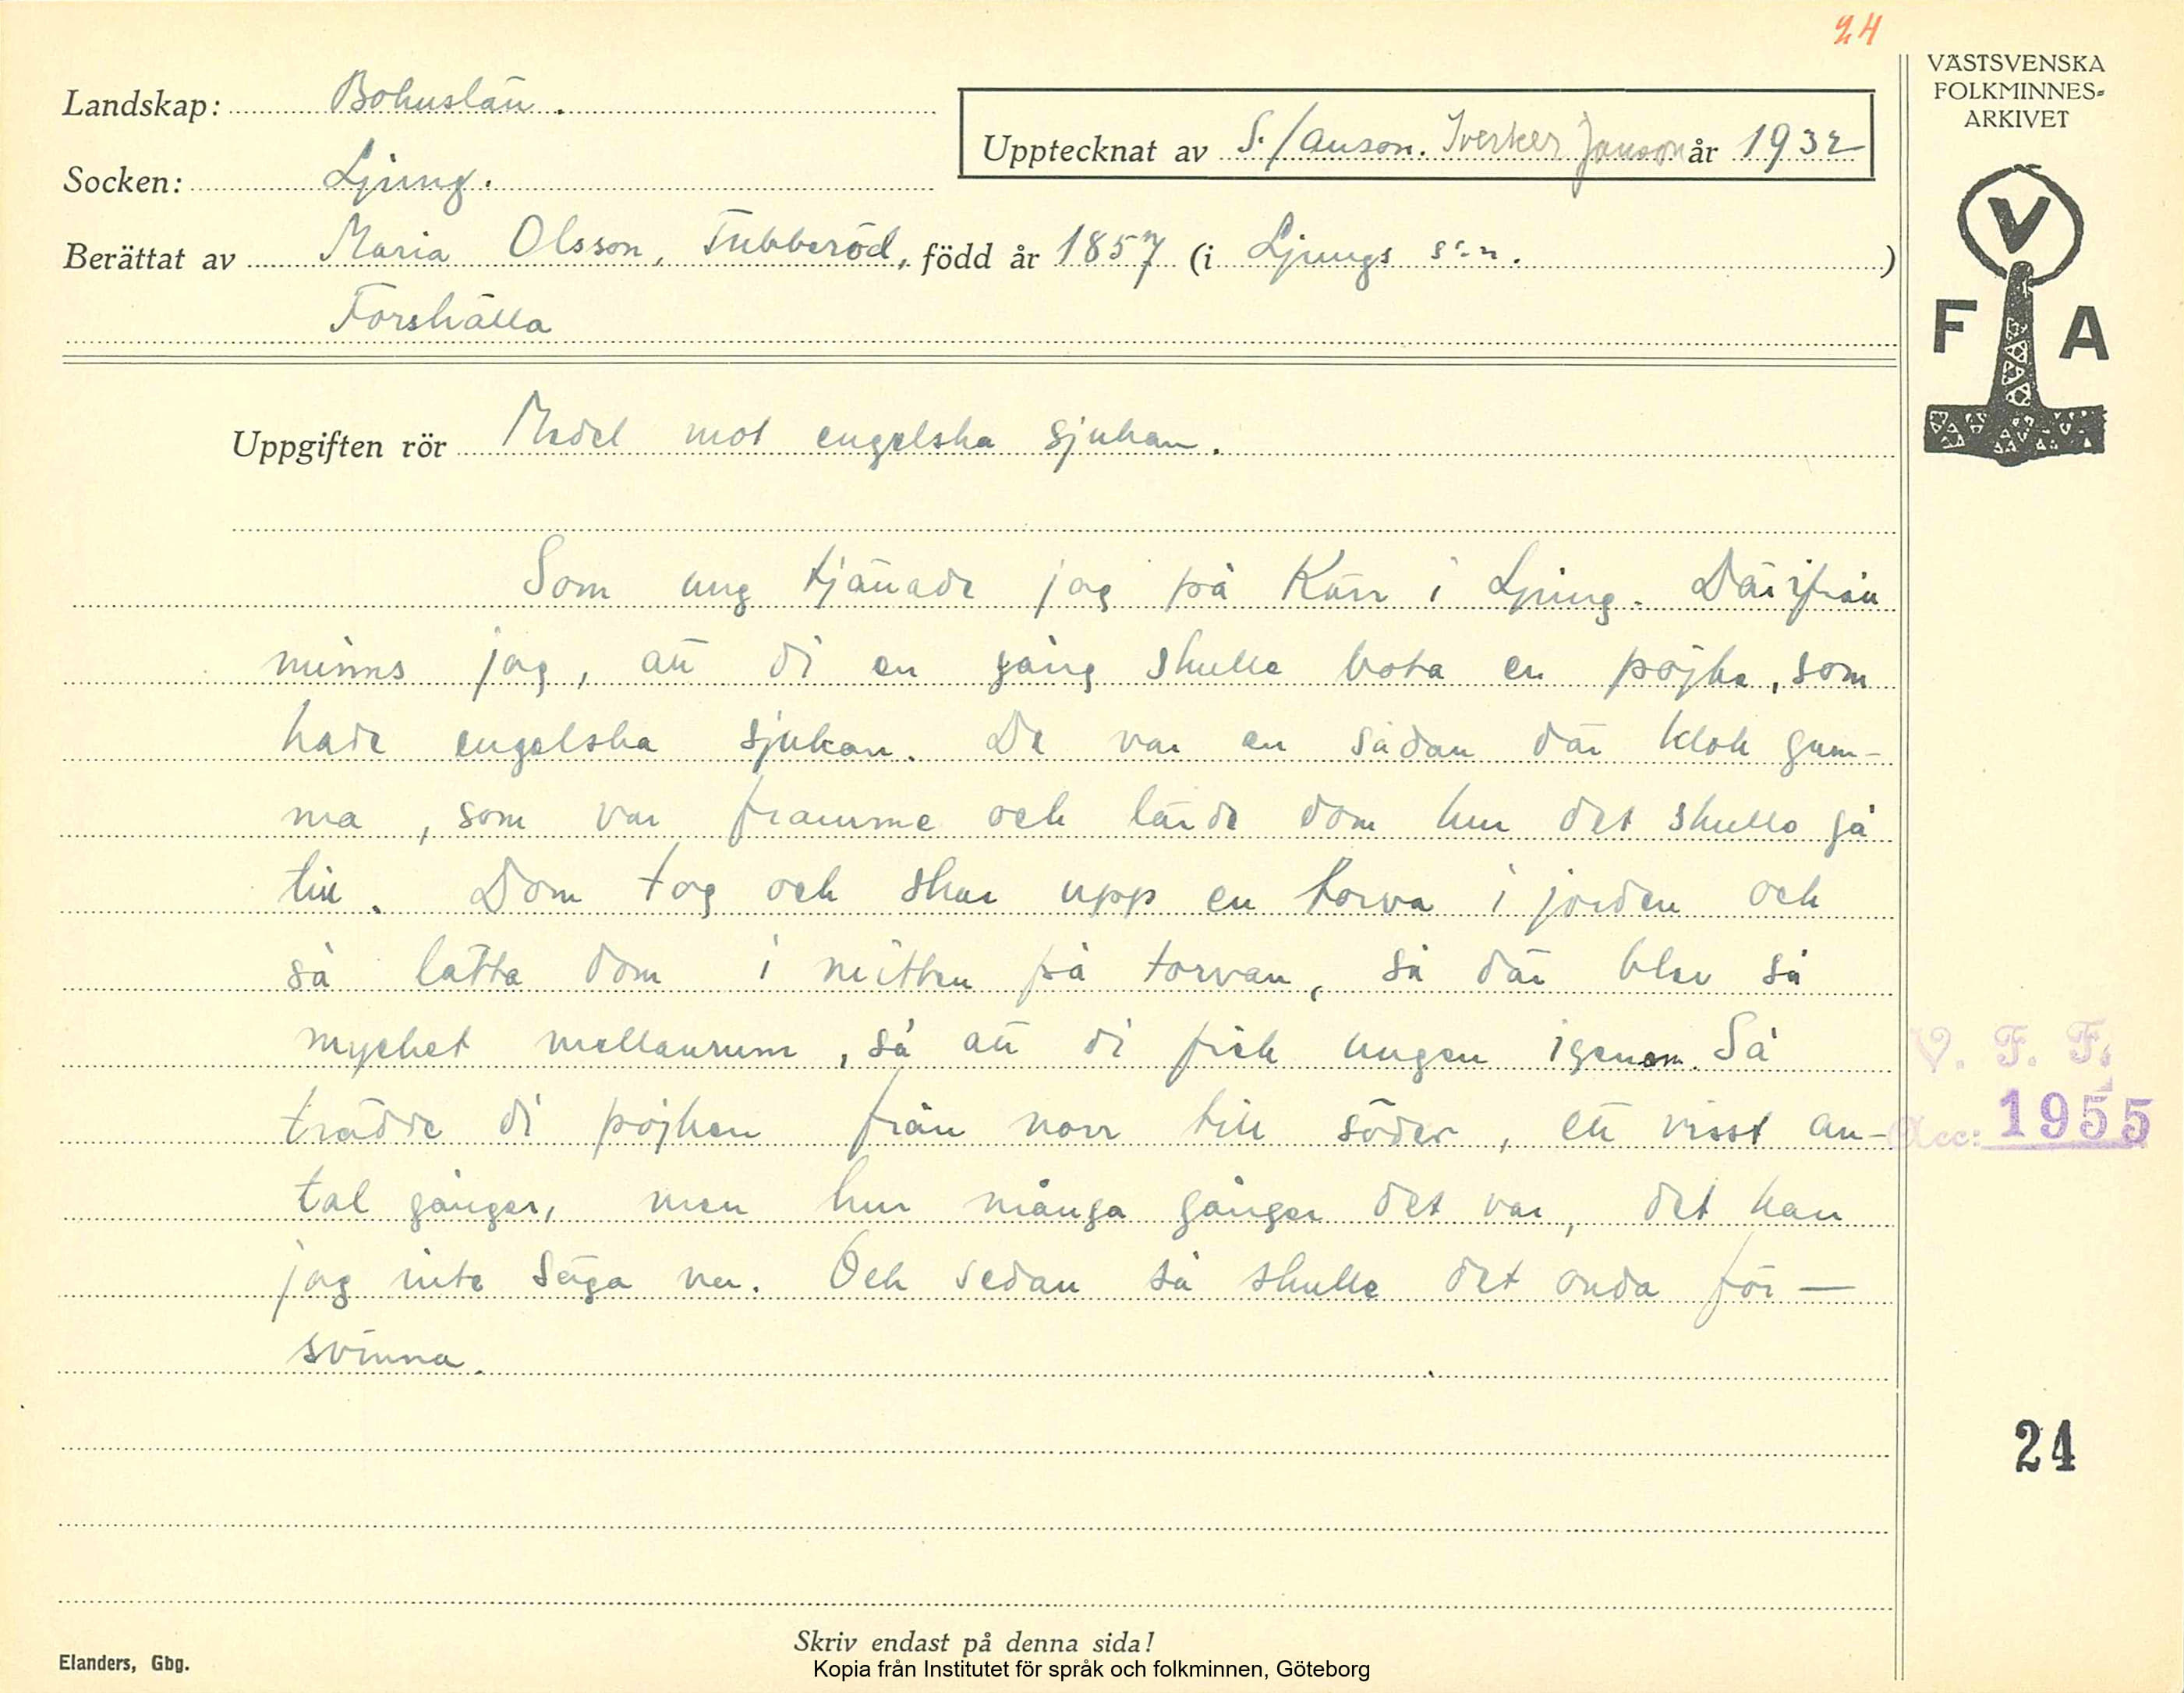 24
VÄSTSVENSKA
FOLKMINNES-
ARKIVET
Landskap: Bohuslän.
Upptecknat av S. Janson. Sverker Janson år 1932
Socken: Ljung.
Berättat av Maria Olsson, Tubberöd, född år 1857 (i Ljungs s:n.)
Forshälla
V
F A
Uppgiften rör Medel mot engelska sjukan.
Som ung tjänade jag på Kärr i Ljung. Därifrån
minns jag, att di en gång skulle bota en pojke, som
hade engelska sjukan. De var en sådan där klok gum-
ma, som var framme och lärde dom hur det skulle gå
till. Dom tog och skar upp en torva i jorden och
så lätta dom i mitten på torvan, så där blev så
mycket mellanrum, så att di fick ungen igenom. Så
trädde di pojken från norr till söder, ett visst an-
tal gånger, men hur många gånger det var, det kan
jag inte säga ner. Och sedan så skulle det onda för-
svinna.
V. F. F.
Acc: 1955
24
Skriv endast på denna sida!
Elanders, Gbg.
Kopia från Institutet för språk och folkminnen, Göteborg